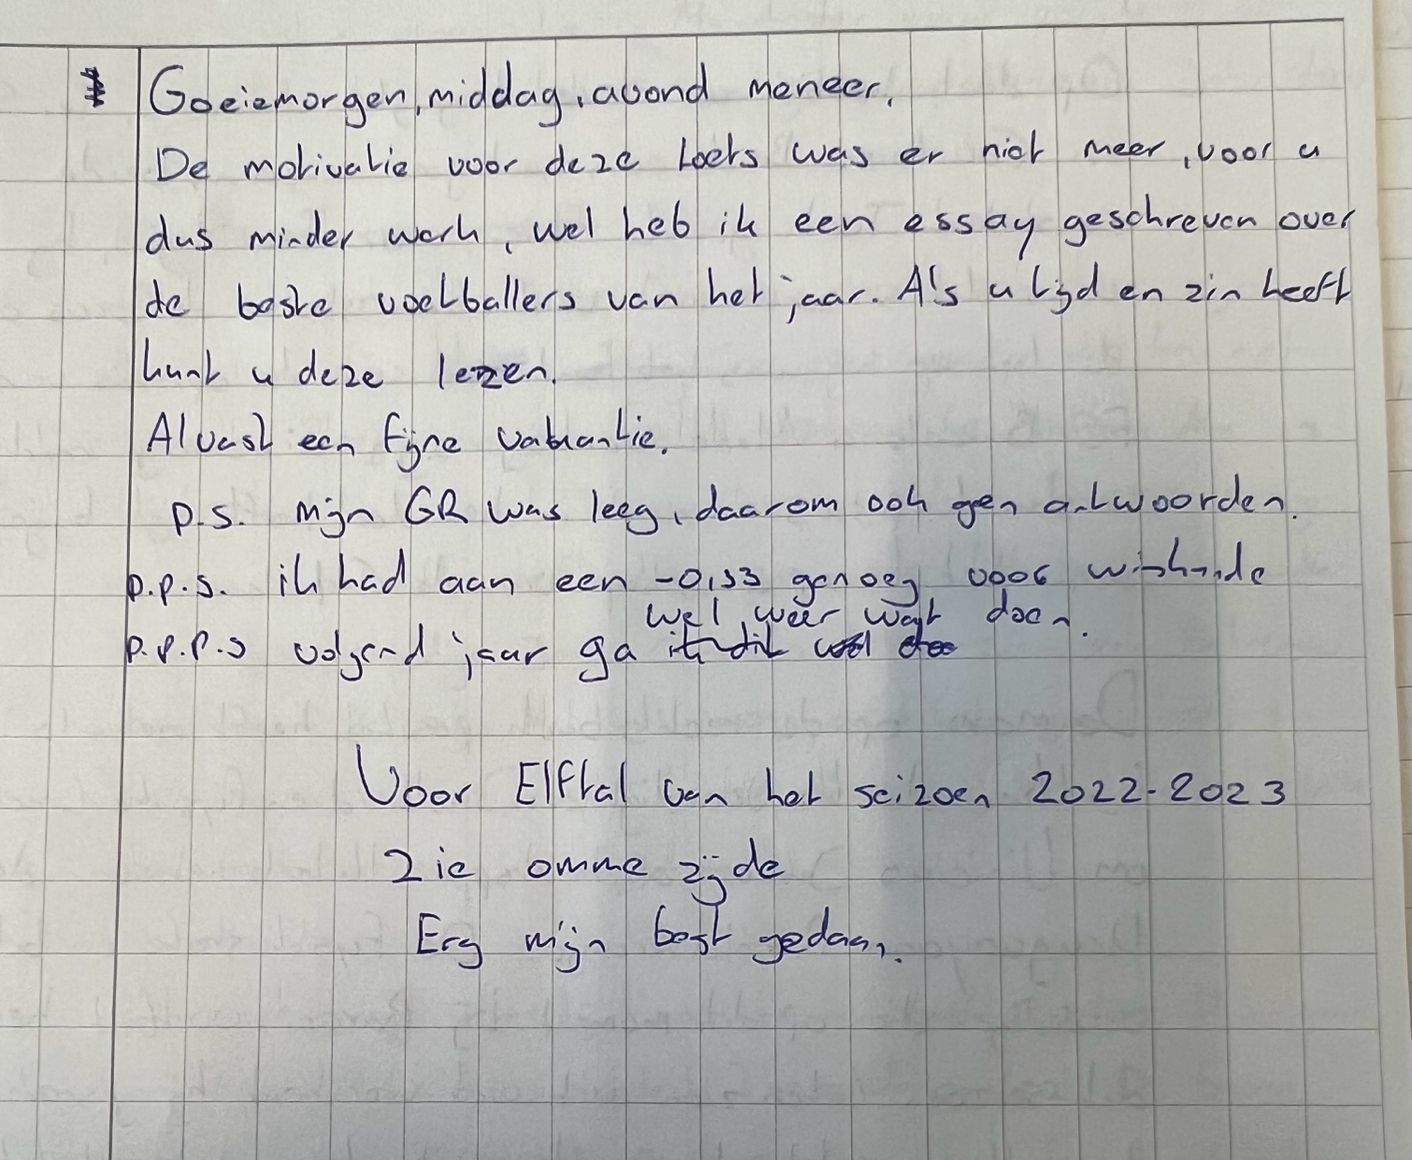 Goeiemorgen, middag, avond meneer,
De motivatie voor deze toets was er niet meer, voor u
dus minder werk, wel heb ik een essay geschreven over
de beste voetballers van het jaar. Als u tijd en zin heeft
kunt u deze lezen.
Alvast een fijne vakantie.
p.s. mijn GR was leeg, daarom ook geen antwoorden.
p.p.s. ik had aan een -0,53 genoeg voor wiskunde
wel weer wat doen.
p.p.p.s volgend jaar ga ik dit
Voor Elftal van het seizoen 2022-2023
Zie omme zijde
Erg mijn best gedaan.